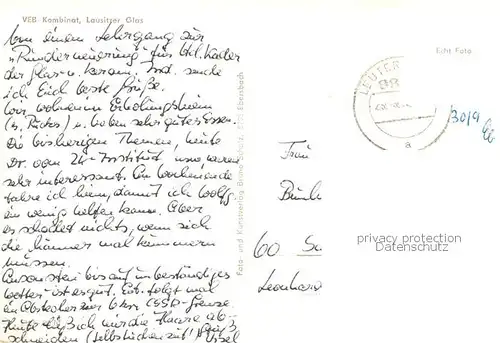 VEB Kombinat, Lausitzer Glas
Von einem Lehrgang zur
"Runderneuerung" für
der Glas- u. Keram. Ind. sende
ich Euch beste Grüße.
Wir wohnen im Erholungsheim
u. haben sehr gutes Essen.
Die bisherigen Themen, heute
Dr. vom ZK-Institut waren
sehr interessant. Am Wochenende
fahre ich heim, damit ich Wolfg.
ein wenig helfen kann. Aber
es schadet nichts, wenn sich
die Männer mal kümmern
müssen.
Ansonsten bis auf unbeständiges
Wetter ist es gut. Evt. folgt mal
ein Abstecher zur CSSR-Grenze.
Heute ließ ich mir die Haare ab-
schneiden (Selbstkochen zu!) Gruß
Foto- und Kunstverlag Bruno Scholz, Ebersbach
Echt Foto
LEUTER
DDR
a
30/9
Frau
60 Su
Leonhard
privacy protection
Datenschutz